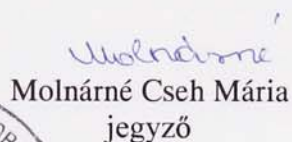 Molnárné
Molnárné Cseh Mária
jegyző